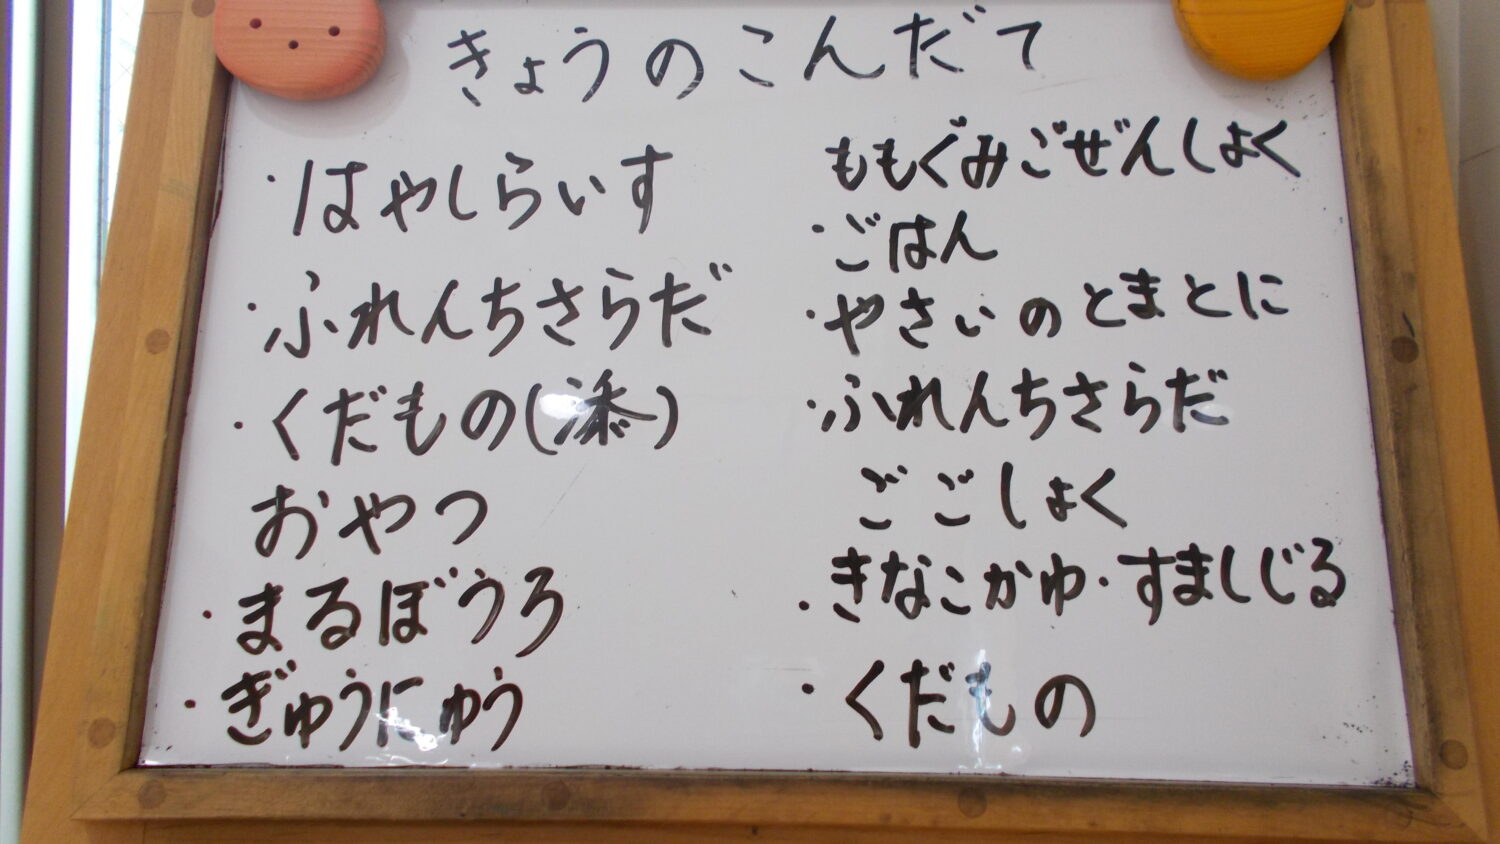 きょうのこんだて
・はやしらいす
・ふれんちさらだ
・くだもの(添)
おやつ
・まるぼうろ
・ぎゅうにゅう
ももぐみごぜんしょく
・ごはん
・やさいのとまとに
・ふれんちさらだ
ごごしょく
・きなこかゆ・すましじる
・くだもの